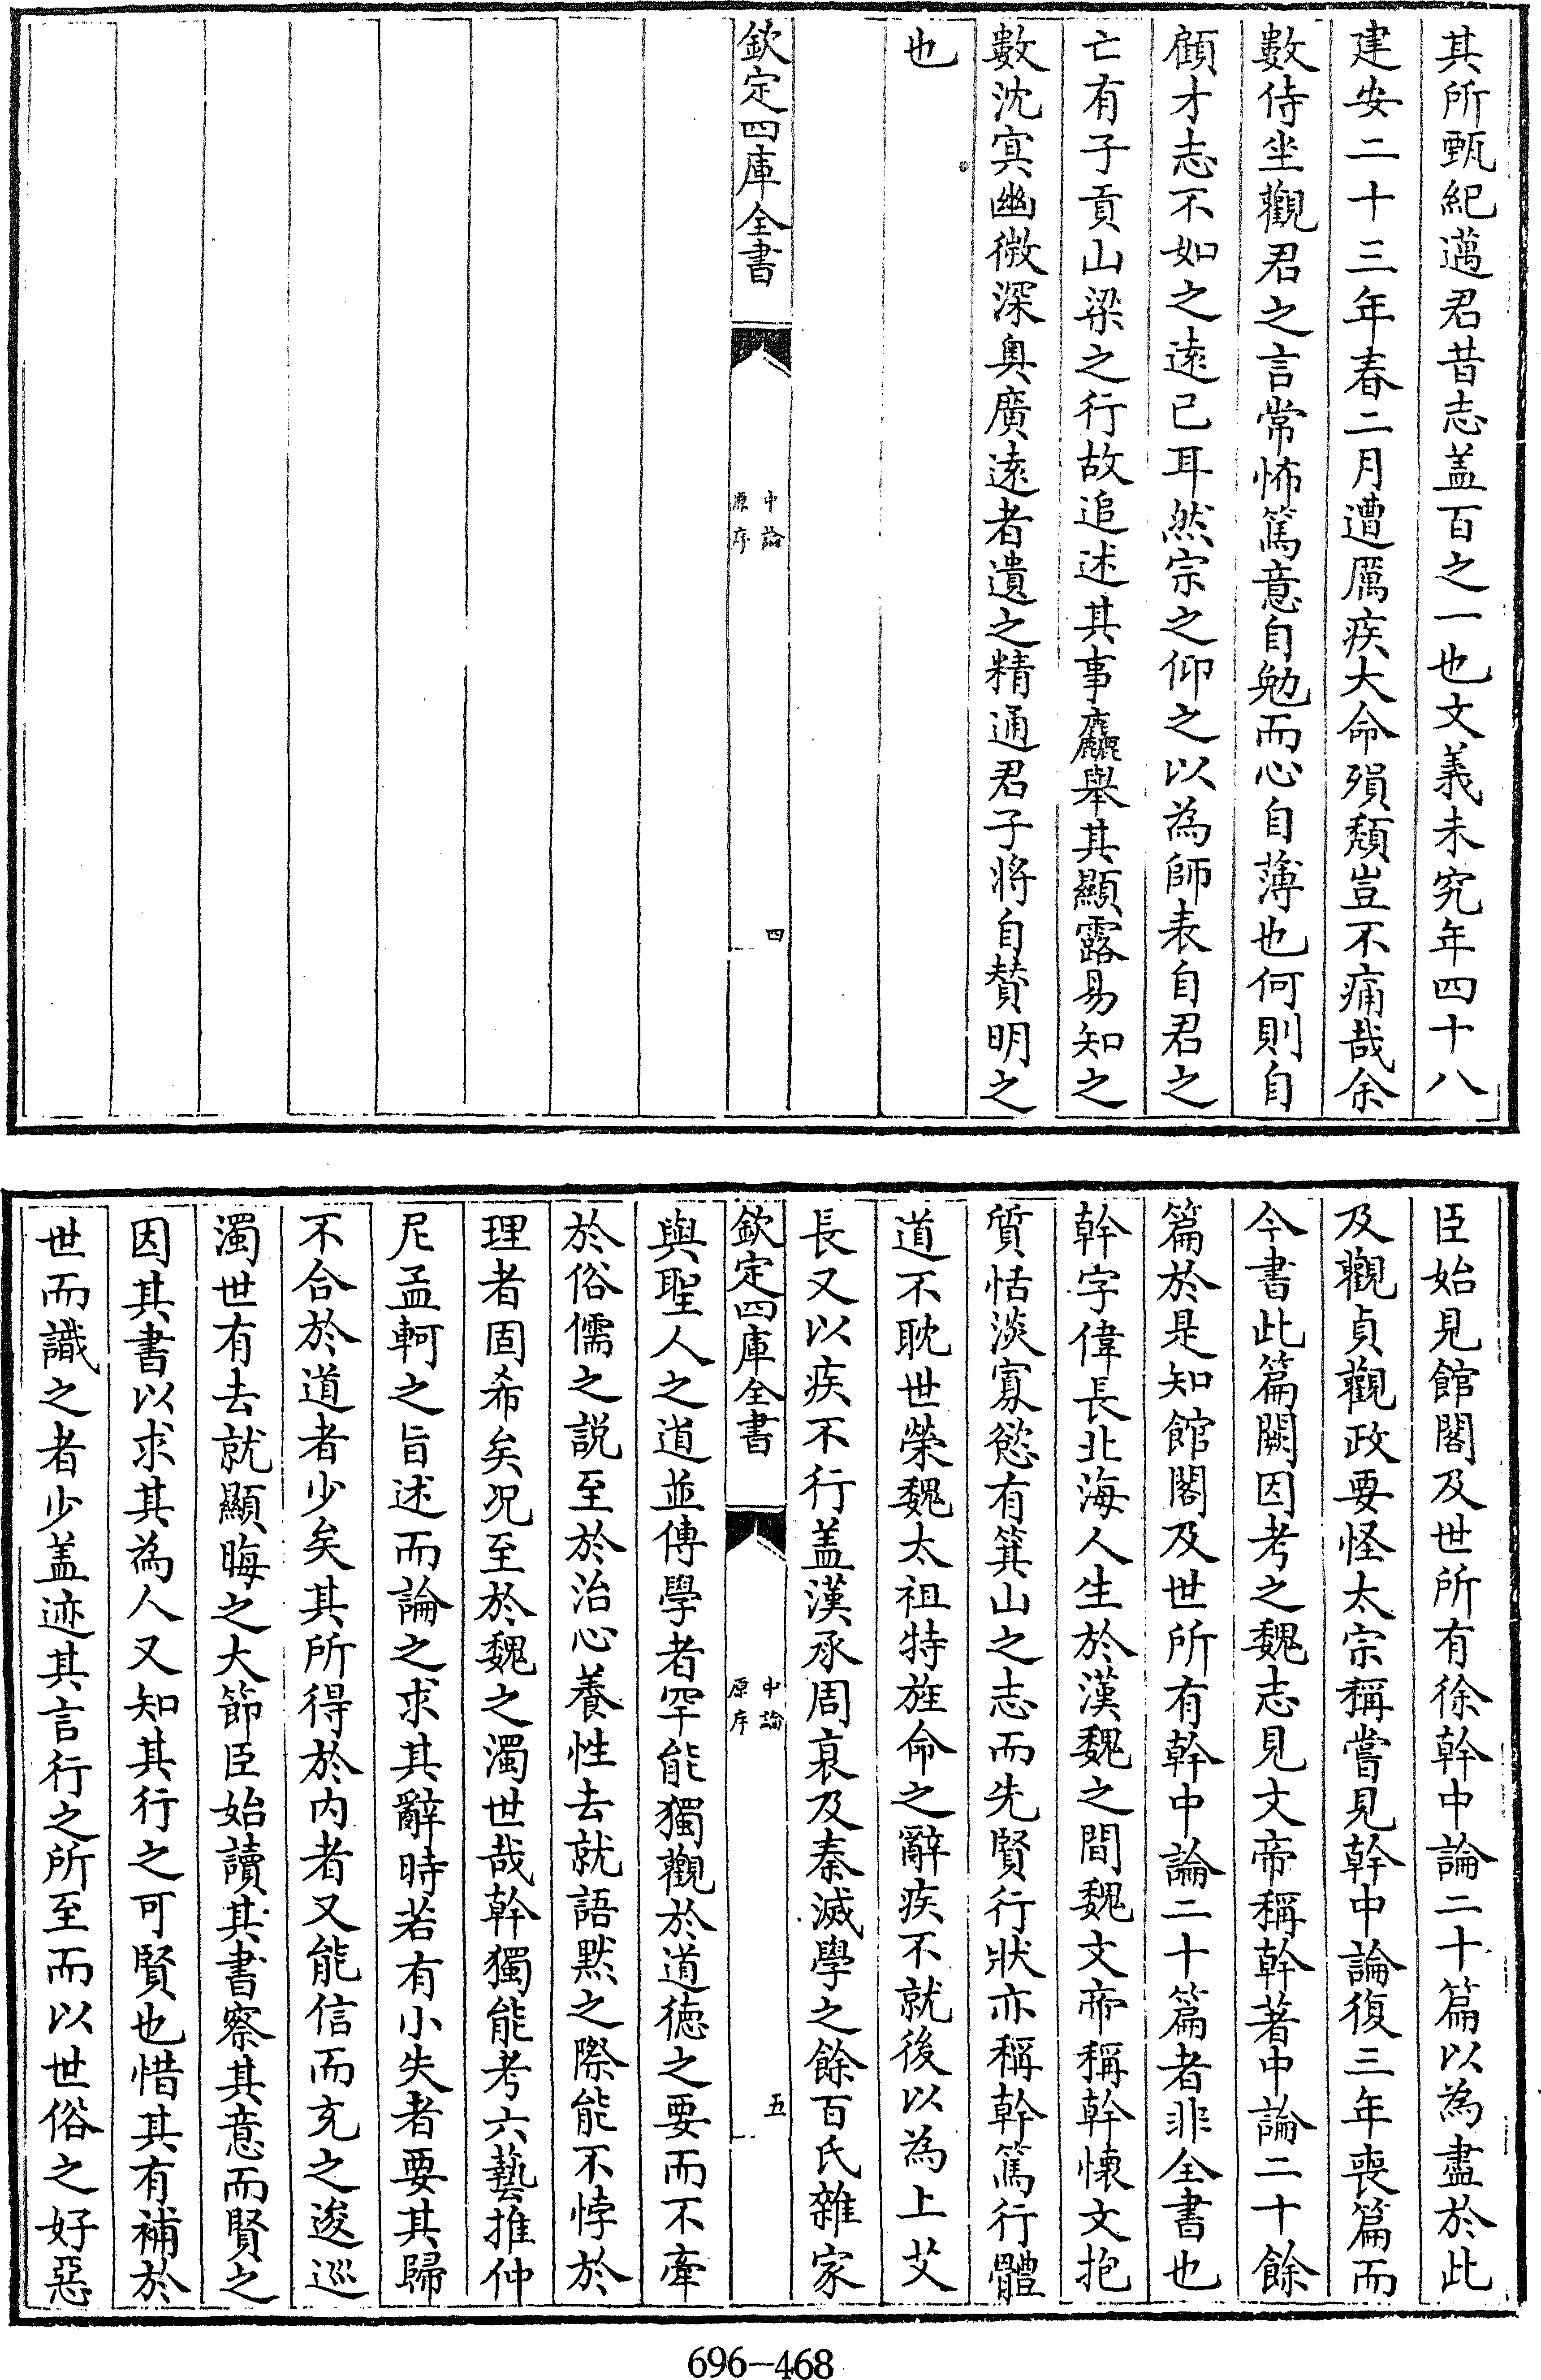 其所甄紀邁君昔志盖百之一也文義未究年四十八
建安二十三年春二月遭厲疾大命殞頽豈不痛哉余
數侍坐觀君之言常怖篤意自勉而心自薄也何則自
顧才志不如之逺已耳然宗之仰之以為師表自君之
亡有子貢山梁之行故追述其事麤舉其顯露易知之
數沈㝠幽微深奥廣逺者遺之精通君子將自賛明之
也
欽定四庫全書
中論
原序
四
臣始見館閣及世所有徐幹中論二十篇以為盡於此
及觀貞觀政要怪太宗稱嘗見幹中論復三年喪篇而
今書此篇闕因考之魏志見文帝稱幹著中論二十餘
篇於是知館閣及世所有幹中論二十篇者非全書也
幹字偉長北海人生於漢魏之間魏文帝稱幹懐文抱
質恬淡寡慾有箕山之志而先賢行狀亦稱幹篤行體
道不耽世榮魏太祖特旌命之辭疾不就後以為上艾
長又以疾不行盖漢承周衰及秦滅學之餘百氏雜家
欽定四庫全書
中論
原序
五
與聖人之道並傳學者罕能獨觀於道徳之要而不牽
於俗儒之説至於治心養性去就語黙之際能不悖於
理者固希矣况至於魏之濁世哉幹獨能考六藝推仲
尼孟軻之旨述而論之求其辭時若有小失者要其歸
不合於道者少矣其所得於内者又能信而充之逡巡
濁世有去就顯晦之大節臣始讀其書察其意而賢之
因其書以求其為人又知其行之可賢也惜其有補於
世而識之者少盖迹其言行之所至而以世俗之好惡
696-468